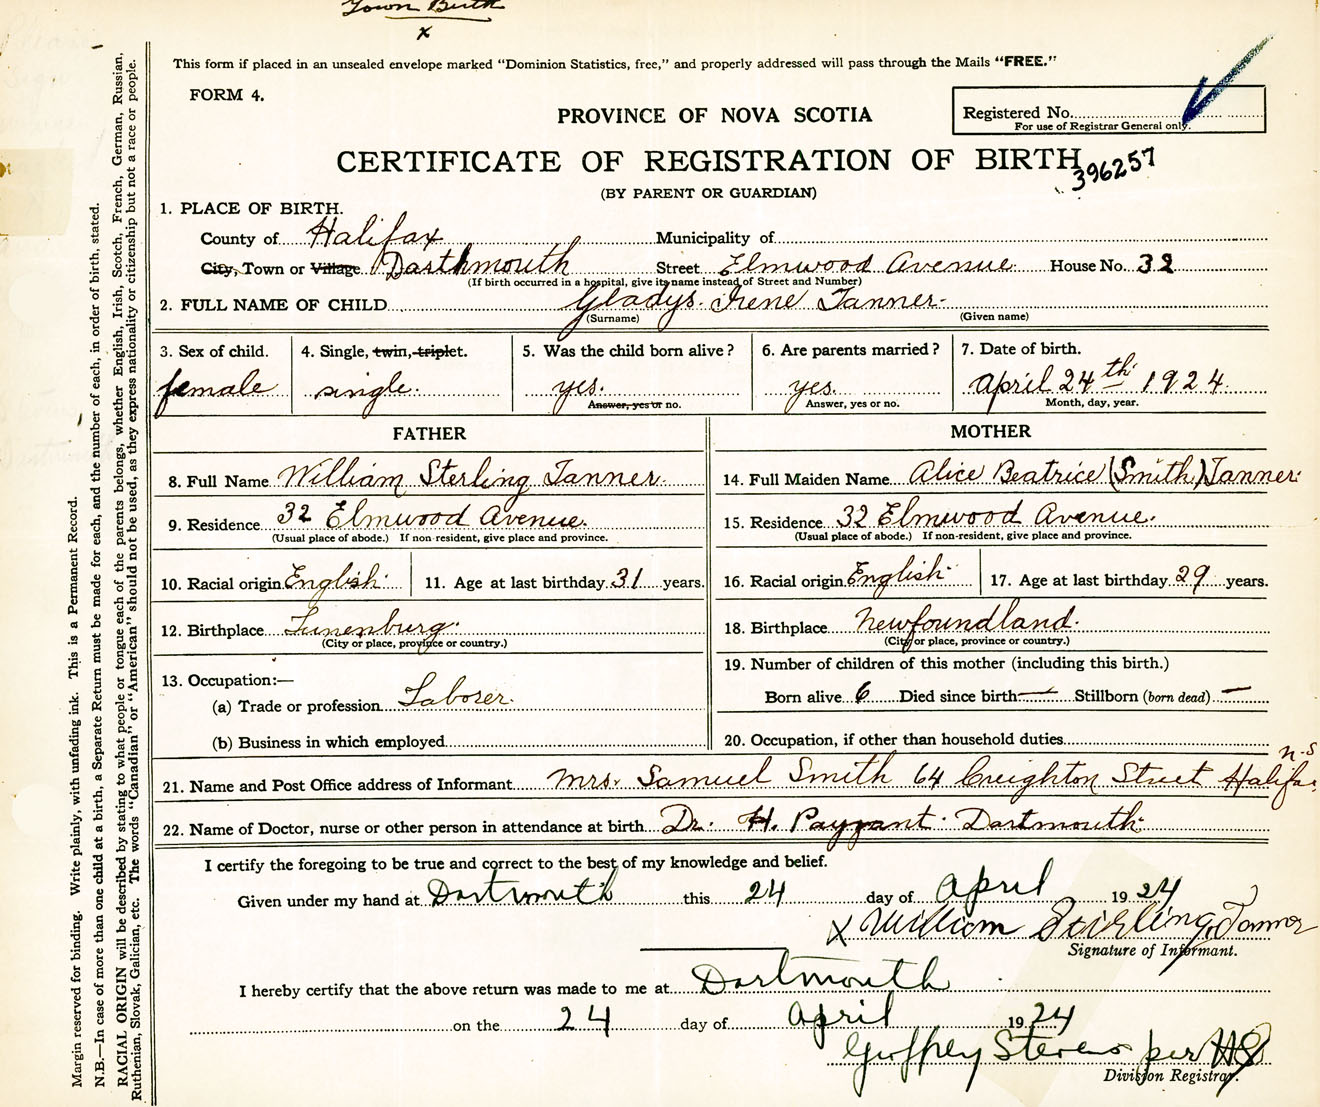 Town Birth
x
This form if placed in an unsealed envelope marked "Dominion Statistics, free," and properly addressed will pass through the Mails "FREE."
FORM 4.
PROVINCE OF NOVA SCOTIA
Registered No.
For use of Registrar General only.
CERTIFICATE OF REGISTRATION OF BIRTH
396257
(BY PARENT OR GUARDIAN)
1. PLACE OF BIRTH.
County of Halifax Municipality of
City, Town or Village Dartmouth Street Elmwood Avenue House No. 32
(If birth occurred in a hospital, give its name instead of Street and Number)
2. FULL NAME OF CHILD Gladys Irene Tanner
(Surname) (Given name)
3. Sex of child. 4. Single, twin, triplet. 5. Was the child born alive? 6. Are parents married? 7. Date of birth.
female single. yes. yes. April 24th 1924
Answer, yes or no. Answer, yes or no. Month, day, year.
FATHER
8. Full Name William Sterling Tanner.
9. Residence 32 Elmwood Avenue.
(Usual place of abode.) If non-resident, give place and province.
10. Racial origin English 11. Age at last birthday 31 years.
12. Birthplace Lunenburg.
(City or place, province or country.)
13. Occupation:—
(a) Trade or profession Laborer.
(b) Business in which employed
MOTHER
14. Full Maiden Name Alice Beatrice (Smith) Tanner.
15. Residence 32 Elmwood Avenue.
(Usual place of abode.) If non-resident, give place and province.
16. Racial origin English 17. Age at last birthday 29 years.
18. Birthplace Newfoundland.
(City or place, province or country.)
19. Number of children of this mother (including this birth.)
Born alive 6 Died since birth — Stillborn (born dead) —
20. Occupation, if other than household duties
21. Name and Post Office address of Informant Mrs. Samuel Smith 64 Creighton Street Halifax N.S
22. Name of Doctor, nurse or other person in attendance at birth Dr. H. Payzant Dartmouth
I certify the foregoing to be true and correct to the best of my knowledge and belief.
Given under my hand at Dartmouth this 24 day of April 1924
X William Stirling Tanner
Signature of Informant.
I hereby certify that the above return was made to me at Dartmouth
on the 24 day of April 1924
Geoffrey Stevens per
Division Registrar.
Margin reserved for binding. Write plainly, with unfading ink. This is a Permanent Record.
N.B.—In case of more than one child at a birth, a Separate Return must be made for each, and the number of each, in order of birth, stated.
RACIAL ORIGIN will be described by stating to what people or tongue each of the parents belongs, whether English, Irish, Scotch, French, German, Russian,
Ruthenian, Slovak, Galician, etc. The words "Canadian" or "American" should not be used, as they express nationality or citizenship but not a race or people.